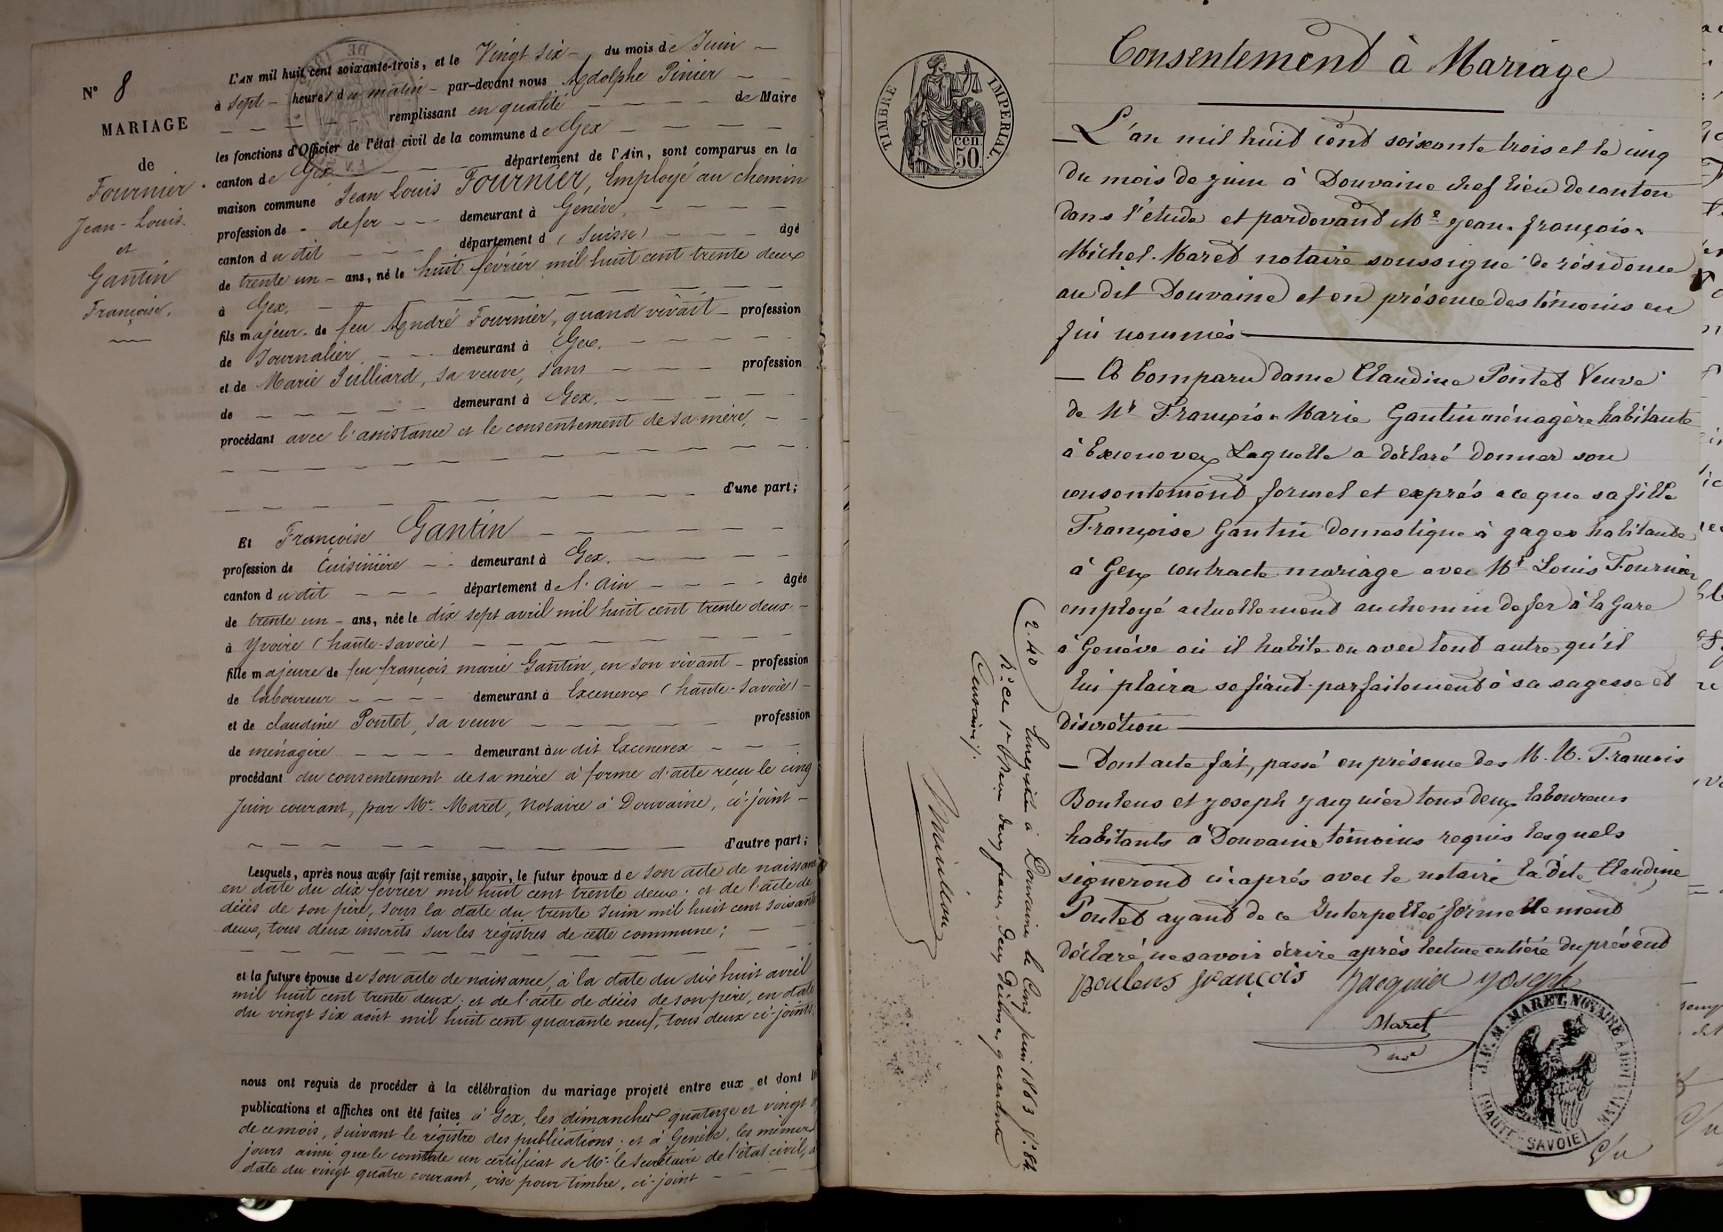 N° 8
MARIAGE
de
Fournier
Jean-Louis.
et
Gantin
Françoise.
L'AN mil huit cent soixante-trois, et le Vingt six – du mois de Juin –
à sept – heures du matin – par-devant nous Adolphe Pinier – –
– – – – – remplissant en qualité – – – – de Maire
les fonctions d'Officier de l'état civil de la commune de Gex – – – –
canton de Gex – – – – département de l'Ain, sont comparus en la
maison commune Jean Louis Fournier, Employé au chemin
profession de – de fer – – – demeurant à Genève, – – – –
canton du dit – – – – département d (Suisse) – – – – âgé
de trente un – ans, né le huit février mil huit cent trente deux
à Gex. – – – – – – –
fils majeur de feu André Fournier, quand vivait – profession
de Journalier – – – demeurant à Gex. – – – –
et de Marie Julliard, sa veuve, sans – – – – profession
de – – – – – – demeurant à Gex. – – – –
procédant avec l'assistance et le consentement de sa mère, – –
d'une part;
Et Françoise Gantin – – – – –
profession de Cuisinière – – demeurant à Gex. – – – –
canton du dit – – – département de l'Ain – – – – âgée
de trente un – ans, née le dix sept avril mil huit cent trente deux –
à Yvoire (haute-Savoie) – – – – – –
fille majeure de feu françois marie Gantin, en son vivant – profession
de laboureur – – – – demeurant à Excenevex (haute-Savoie) –
et de claudine Pontet, sa veuve – – – – – profession
de ménagère – – – – demeurant au dit Excenevex – – –
procédant du consentement de sa mère à forme d'acte reçu le cinq
Juin courant, par Me. Maret, notaire à Douvaine, ci-joint –
– – – – – – – – d'autre part;
Lesquels, après nous avoir fait remise, savoir, le futur époux de son acte de naissance
en date du dix février mil huit cent trente deux; et de l'acte de
décès de son père, sous la date du trente Juin mil huit cent soixante
deux, tous deux inscrits sur les registres de cette commune; – –
et la future épouse de son acte de naissance, à la date du dix huit avril
mil huit cent trente deux; et de l'acte de décès de son père, en date
du vingt six août mil huit cent quarante neuf, tous deux ci-joints.
nous ont requis de procéder à la célébration du mariage projeté entre eux et dont les
publications et affiches ont été faites à Gex, les dimanches quatorze et vingt
de ce mois, suivant le régistre des publications; et à Genève, les mêmes
jours ainsi que le constate un certificat de Mr. le Secrétaire de l'état civil, à
date du vingt quatre courant, visé pour timbre, ci-joint – –
TIMBRE IMPÉRIAL
50 cen
Consentement à Mariage
– L'an mil huit cent soixante trois et le cinq
du mois de juin à Douvaine chef lieu de canton
dans l'étude et pardevant Me jean-françois-
Michel Maret notaire soussigné de résidence
au dit Douvaine et en présence des témoins en
fin nommés
– A Comparu dame Claudine Pontet Veuve
de Mr François-Marie Gantin ménagère habitante
à Excenevex Laquelle a déclaré donner son
consentement formel et exprès a ce que sa fille
Françoise Gantin domestique à gages habitante
à Gex contracte mariage avec Mr Louis Fournier
employé actuellement au chemin de fer à la Gare
à Genève où il habite ou avec tout autre qu'il
lui plaira se fiant parfaitement à sa sagesse et
discrétion
– Dont acte fait, passé en présence des M.M. François
Boulens et joseph jacquier tous deux laboureurs
habitants à Douvaine témoins requis lesquels
signeront ci après avec le notaire la dite Claudine
Pontet ayant de ce Interpellée formellement
déclaré ne savoir écrire après lecture entière du présent
boulens françois Jacquier joseph
Maret
nre
J. F. M. MARET, NOTAIRE A DOUVAINE
(HAUTE-SAVOIE)
Enregistré à Douvaine le Cinq juin 1863 fo 84
deux francs, deux décimes quarante
2.40